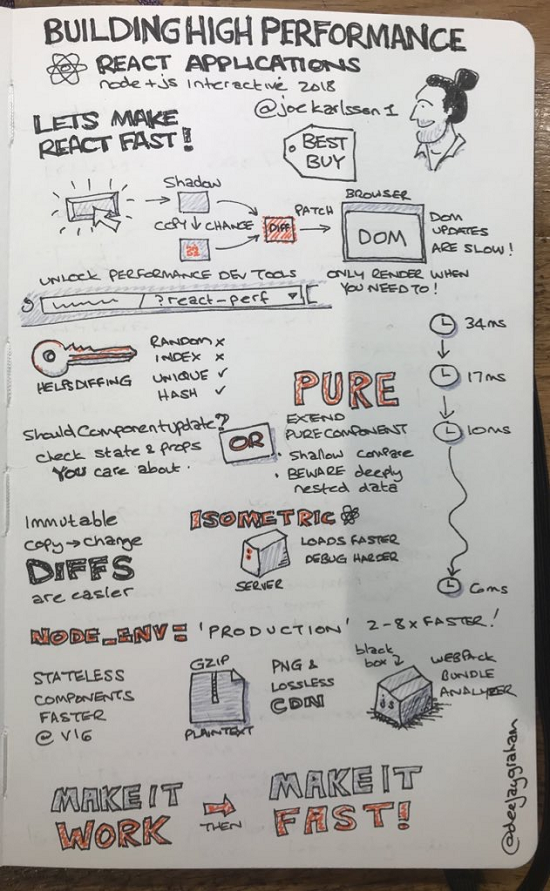 BUILDING HIGH PERFORMANCE
REACT APPLICATIONS
node + js interactive 2018
@joekarlsson1
LETS MAKE
REACT FAST!
BEST
BUY
Shadow
COPY ↓ CHANGE
DIFF
PATCH
BROWSER
DOM
DOM
UPDATES
ARE SLOW!
UNLOCK PERFORMANCE DEV TOOLS
/?react-perf
ONLY RENDER WHEN
YOU NEED TO!
HELPS DIFFING
RANDOM x
INDEX x
UNIQUE ✓
HASH ✓
34ms
17ms
10ms
6ms
Should Component update?
check state & props
YOU care about.
OR
PURE
EXTEND
PURE COMPONENT
• Shallow compare
• BEWARE deeply
nested data
Immutable
copy → change
DIFFS
are easier
ISOMETRIC
SERVER
LOADS FASTER
DEBUG HARDER
NODE_ENV = 'PRODUCTION' 2-8x FASTER!
STATELESS
COMPONENTS
FASTER
@ V16
GZIP
PLAINTEXT
PNG &
LOSSLESS
CDN
black
box?
JS
WEBPACK
BUNDLE
ANALYZER
MAKE IT
WORK
THEN
MAKE IT
FAST!
@deejaygraham